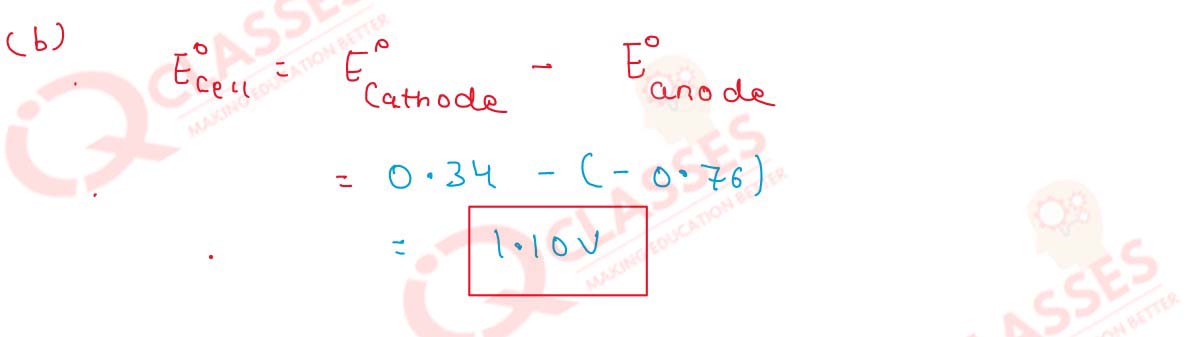 (b) E°cell = E°Cathode - E°anode
= 0.34 - (-0.76)
= 1.10V
CLASSES
MAKING EDUCATION BETTER
CLASSES
MAKING EDUCATION BETTER
ASSES
ION BETTER